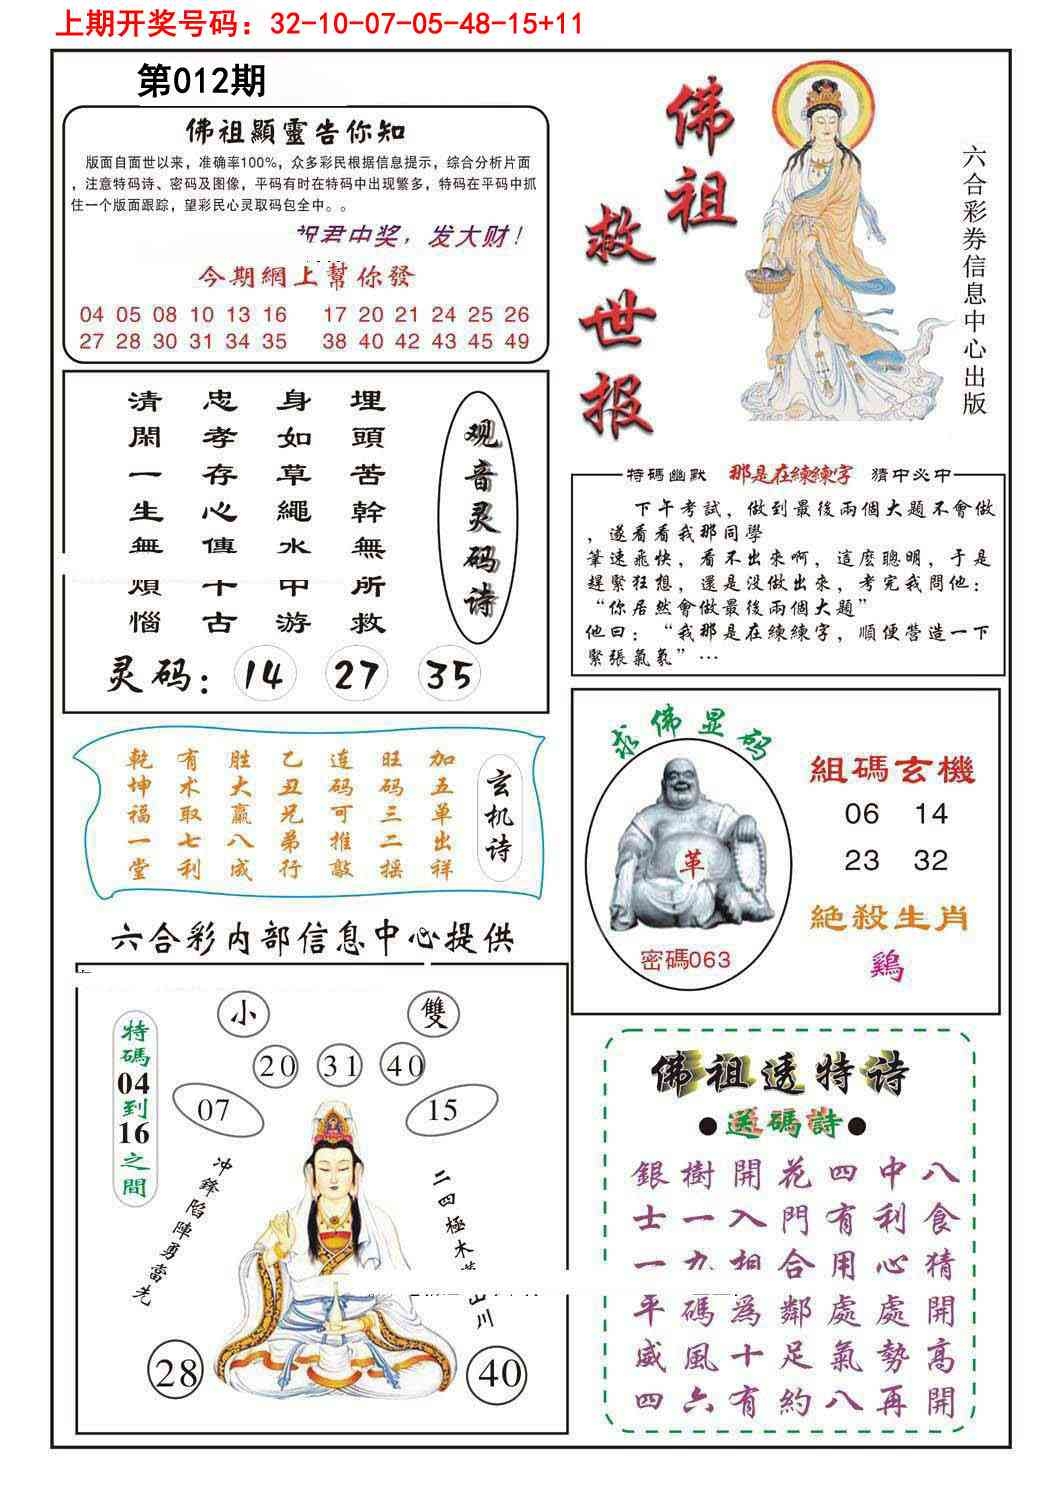 上期开奖号码：32-10-07-05-48-15+11
第012期
佛祖顯靈告你知
版面自面世以来，准确率100%，众多彩民根据信息提示，综合分析片面
，注意特码诗、密码及图像，平码有时在特码中出现繁多，特码在平码中抓
住一个版面跟踪，望彩民心灵取码包全中。。
祝君中奖，发大财！
今期網上幫你發
04 05 08 10 13 16 17 20 21 24 25 26
27 28 30 31 34 35 38 40 42 43 45 49
佛祖
救世报
六合彩券信息中心出版
观音灵码诗
埋頭苦幹無所救
身如草繩水中游
忠孝存心傳千古
清閑一生無煩惱
灵码：14 27 35
特碼幽默 那是在練練字 猜中必中
下午考試，做到最後兩個大題不會做
，遂看看我那同學
筆速飛快，看不出來啊，這麽聰明，于是
趕緊狂想，還是没做出來，考完我問他：
“你居然會做最後兩個大題”
他曰：“我那是在練練字，順便营造一下
緊張氣氛”…
玄机诗
加五单出祥
旺码三二摇
连码可推敲
乙丑兄弟行
胜大赢八成
有术取七利
乾坤福一堂
求佛显码
革
密碼063
組碼玄機
06 14
23 32
絶殺生肖
鷄
六合彩内部信息中心提供
特碼04到16之間
小 雙
20 31 40
07 15
冲鋒陷陣勇當先
二四極木
山川
28 40
佛祖透特诗
●送碼詩●
銀樹開花四中八
士一入門有利食
一九相合用心猜
平碼爲鄰處處開
威風十足氣勢高
四六有約八再開